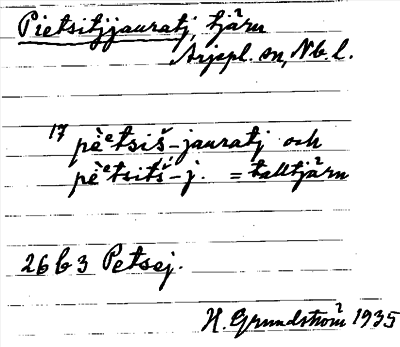 Pietsitjjauratj, tjärn
Arjepl. sn, Nb. l.
17 pè̀etsiš-jauratj och
pè̀etsitš-j. = talltjärn
26 b 3 Petsej.
H. Grundström 1935